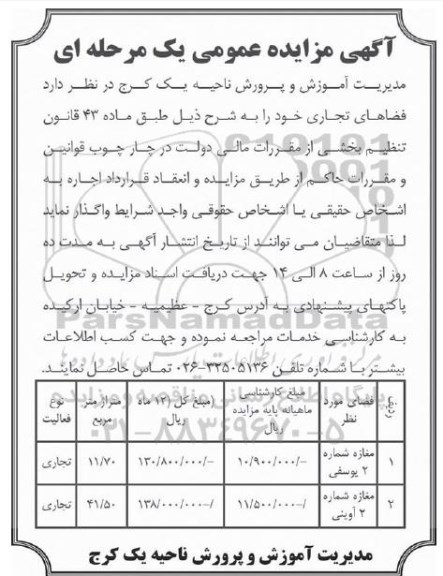 آگهی مزایده عمومی یک مرحله ای
مدیریت آموزش و پرورش ناحیه یک کرج در نظر دارد
فضاهای تجاری خود را به شرح ذیل طبق ماده ۴۳ قانون
تنظیم بخشی از مقررات مالی دولت در چار چوب قوانین
و مقررات حاکم از طریق مزایده و انعقاد قرارداد اجاره به
اشخاص حقیقی یا اشخاص حقوقی واجد شرایط واگذار نماید
لذا متقاضیان می توانند از تاریخ انتشار آگهی به مدت ده
روز از ساعت ۸ الی ۱۴ جهت دریافت اسناد مزایده و تحویل
پاکتهای پیشنهادی به آدرس کرج - عظیمیه - خیابان ارکیده
به کارشناسی خدمات مراجعه نموده و جهت کسب اطلاعات
بیشتر با شماره تلفن ۳۲۵۰۵۱۳۶-۰۲۶ تماس حاصل نمایند.
ردیف فضای مورد نظر مبلغ کارشناسی ماهیانه پایه مزایده ریال (مبلغ کل (۱۲ ماه ریال متراژ متر مربع نوع فعالیت
۱ مغازه شماره ۲ یوسفی ۱۰/۹۰۰/۰۰۰/- ۱۳۰/۸۰۰/۰۰۰/- ۱۱/۷۰ تجاری
۲ مغازه شماره ۲ آوینی ۱۱/۵۰۰/۰۰۰/- ۱۳۸/۰۰۰/۰۰۰/- ۴۱/۵۰ تجاری
مدیریت آموزش و پرورش ناحیه یک کرج
ParsNamadData
۰۲۱-۸۸۳۴۹۶۷۰-۵